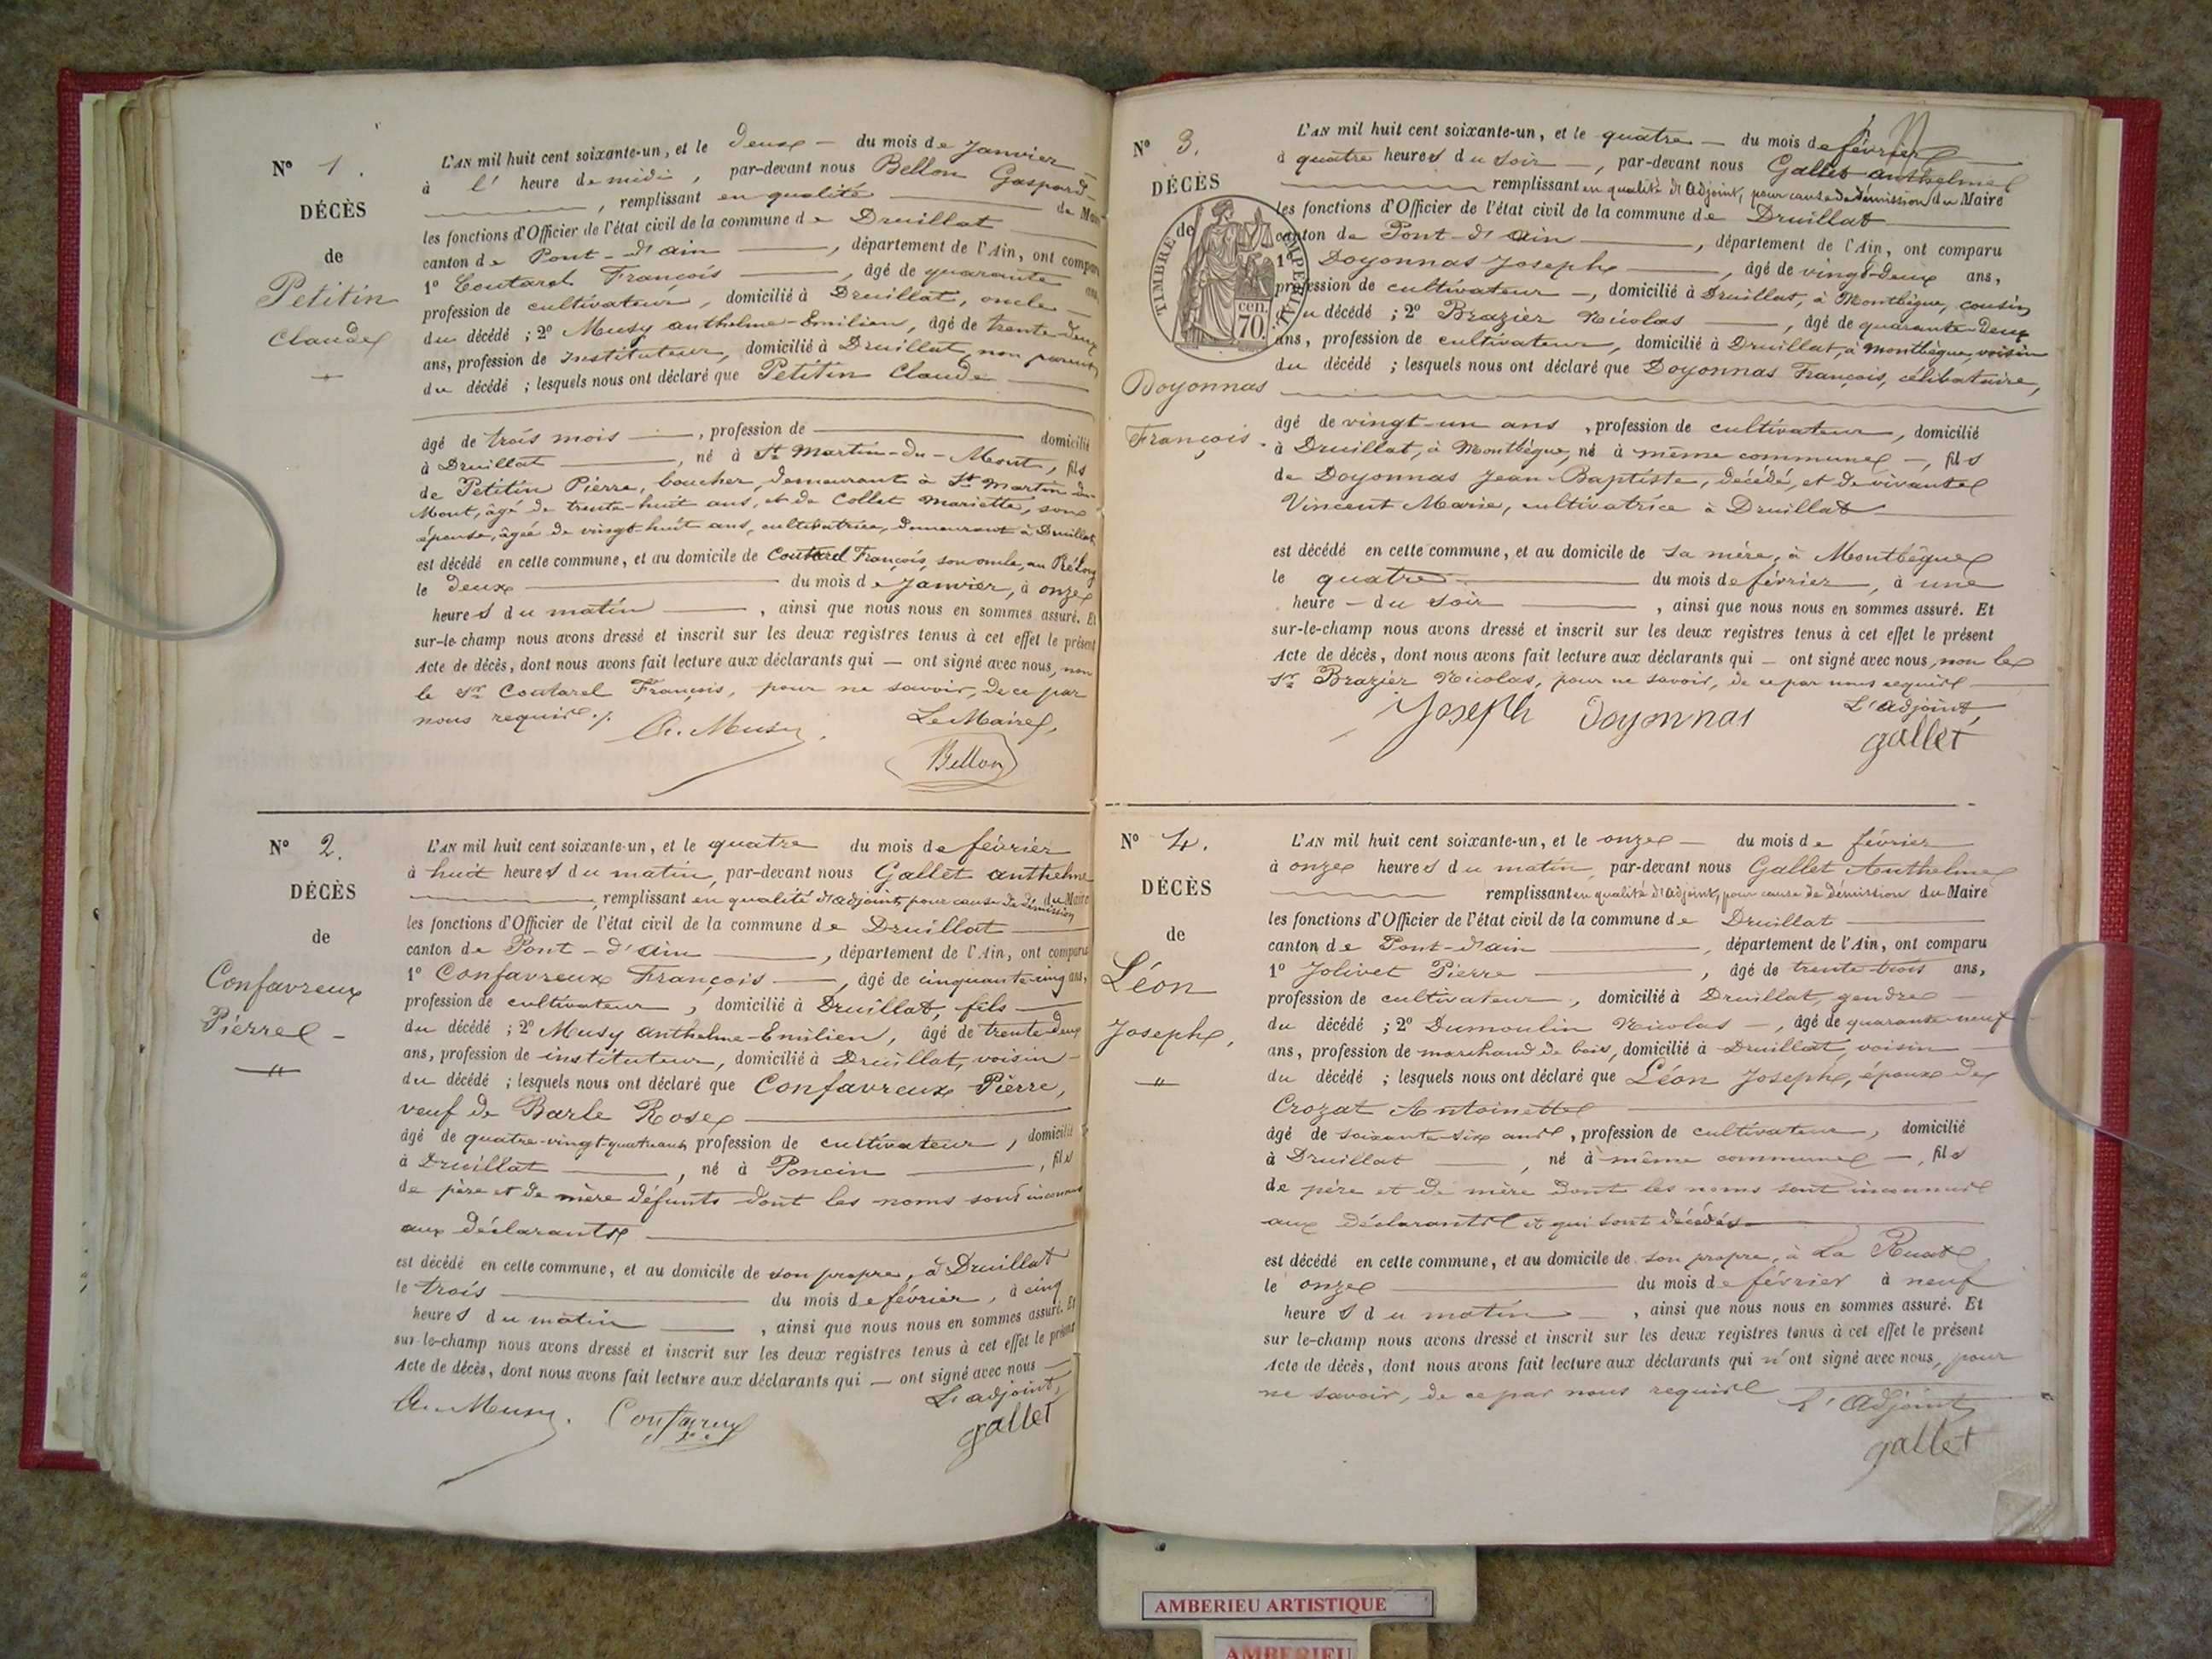 N° 1.
DÉCÈS
de
Petitin
Claude
L'AN mil huit cent soixante-un, et le deux — du mois de Janvier
à l' heure de midi, par-devant nous Bellon Gaspard
, remplissant en qualité de
les fonctions d'Officier de l'état civil de la commune de Druillat
canton de Pont-d'ain, département de l'Ain, ont comparu
1° Coutarel François, âgé de quarante ans,
profession de cultivateur, domicilié à Druillat, oncle
du décédé ; 2° Musy anthelme-Emilien, âgé de trente-deux
ans, profession de Instituteur, domicilié à Druillat, non parent
du décédé ; lesquels nous ont déclaré que Petitin Claude
âgé de trois mois —, profession de domicilié
à Druillat, né à St Martin-du-Mont, fils
de Petitin Pierre, boucher, demeurant à St Martin-du-
Mont, âgé de trente-huit ans, et de Collet Mariette, son
épouse, âgée de vingt-huit ans, cultivatrice, demeurant à Druillat
est décédé en cette commune, et au domicile de Coutarel François, son oncle, au
le deux du mois de Janvier, à onze
heures du matin, ainsi que nous nous en sommes assuré. Et
sur-le-champ nous avons dressé et inscrit sur les deux registres tenus à cet effet le présent
Acte de décès, dont nous avons fait lecture aux déclarants qui — ont signé avec nous, non
le Sr Coutarel François, pour ne savoir, de ce par
nous requis./.
A. Musy. Le Maire,
Bellon
N° 2.
DÉCÈS
de
Confavreux
Pierre -
L'AN mil huit cent soixante-un, et le quatre du mois de février
à huit heures du matin, par-devant nous Gallet anthelme
, remplissant en qualité d'adjoint, pour cause de démission du Maire
les fonctions d'Officier de l'état civil de la commune de Druillat
canton de Pont-d'ain, département de l'Ain, ont comparu
1° Confavreux François —, âgé de cinquante-cinq ans,
profession de cultivateur, domicilié à Druillat, fils
du décédé ; 2° Musy anthelme-Emilien, âgé de trente-deux
ans, profession de instituteur, domicilié à Druillat, voisin
du décédé ; lesquels nous ont déclaré que Confavreux Pierre,
veuf de Barle Rose
âgé de quatre-vingt-quatre ans, profession de cultivateur, domicilié
à Druillat, né à Poncin, fils
de père et de mère défunts dont les noms sont inconnus
aux déclarants
est décédé en cette commune, et au domicile de son propre, à Druillat
le trois du mois de février, à cinq
heures du matin, ainsi que nous nous en sommes assuré. Et
sur-le-champ nous avons dressé et inscrit sur les deux registres tenus à cet effet le présent
Acte de décès, dont nous avons fait lecture aux déclarants qui — ont signé avec nous
L'adjoint,
A. Musy. Confavreux gallet
N° 3.
DÉCÈS
de
TIMBRE IMPÉRIAL
cen.
70.
Doyonnas
François.
L'AN mil huit cent soixante-un, et le quatre — du mois de février
à quatre heures du soir —, par-devant nous Gallet anthelme
remplissant en qualité d'Adjoint, pour cause de démission du Maire
les fonctions d'Officier de l'état civil de la commune de Druillat
canton de Pont-d'ain, département de l'Ain, ont comparu
1° Doyonnas Joseph, âgé de vingt-deux ans,
profession de cultivateur —, domicilié à Druillat, à Monthègue, cousin
du décédé ; 2° Brazier Nicolas, âgé de quarante-deux
ans, profession de cultivateur, domicilié à Druillat, à Monthègue, voisin
du décédé ; lesquels nous ont déclaré que Doyonnas François, célibataire,
âgé de vingt-un ans, profession de cultivateur, domicilié
à Druillat, à Monthègue, né à même commune —, fils
de Doyonnas Jean-Baptiste, décédé, et de vivante
Vincent Marie, cultivatrice à Druillat
est décédé en cette commune, et au domicile de sa mère, à Monthègue
le quatre du mois de février, à une
heure — du soir, ainsi que nous nous en sommes assuré. Et
sur-le-champ nous avons dressé et inscrit sur les deux registres tenus à cet effet le présent
Acte de décès, dont nous avons fait lecture aux déclarants qui — ont signé avec nous, non le
Sr Brazier Nicolas, pour ne savoir, de ce par nous requis
L'adjoint,
Joseph Doyonnas gallet
N° 4.
DÉCÈS
de
Léon
Joseph,
L'AN mil huit cent soixante-un, et le onze — du mois de février
à onze heures du matin, par-devant nous Gallet Anthelme
remplissant en qualité d'Adjoint, pour cause de démission du Maire
les fonctions d'Officier de l'état civil de la commune de Druillat
canton de Pont-d'ain, département de l'Ain, ont comparu
1° Jolivet Pierre, âgé de trente-trois ans,
profession de cultivateur, domicilié à Druillat, gendre
du décédé ; 2° Dumoulin Nicolas —, âgé de quarante-neuf
ans, profession de marchand de bois, domicilié à Druillat, voisin
du décédé ; lesquels nous ont déclaré que Léon Joseph, époux de
Crozat Antoinette
âgé de soixante-six ans, profession de cultivateur, domicilié
à Druillat, né à même commune —, fils
de père et de mère dont les noms sont inconnus
aux déclarants et qui sont décédés
est décédé en cette commune, et au domicile de son propre, à La Ruat
le onze du mois de février à neuf
heures du matin, ainsi que nous nous en sommes assuré. Et
sur le-champ nous avons dressé et inscrit sur les deux registres tenus à cet effet le présent
Acte de décès, dont nous avons fait lecture aux déclarants qui n'ont signé avec nous, pour
ne savoir, de ce par nous requis L'Adjoint,
gallet
AMBERIEU ARTISTIQUE
AMBERIEU